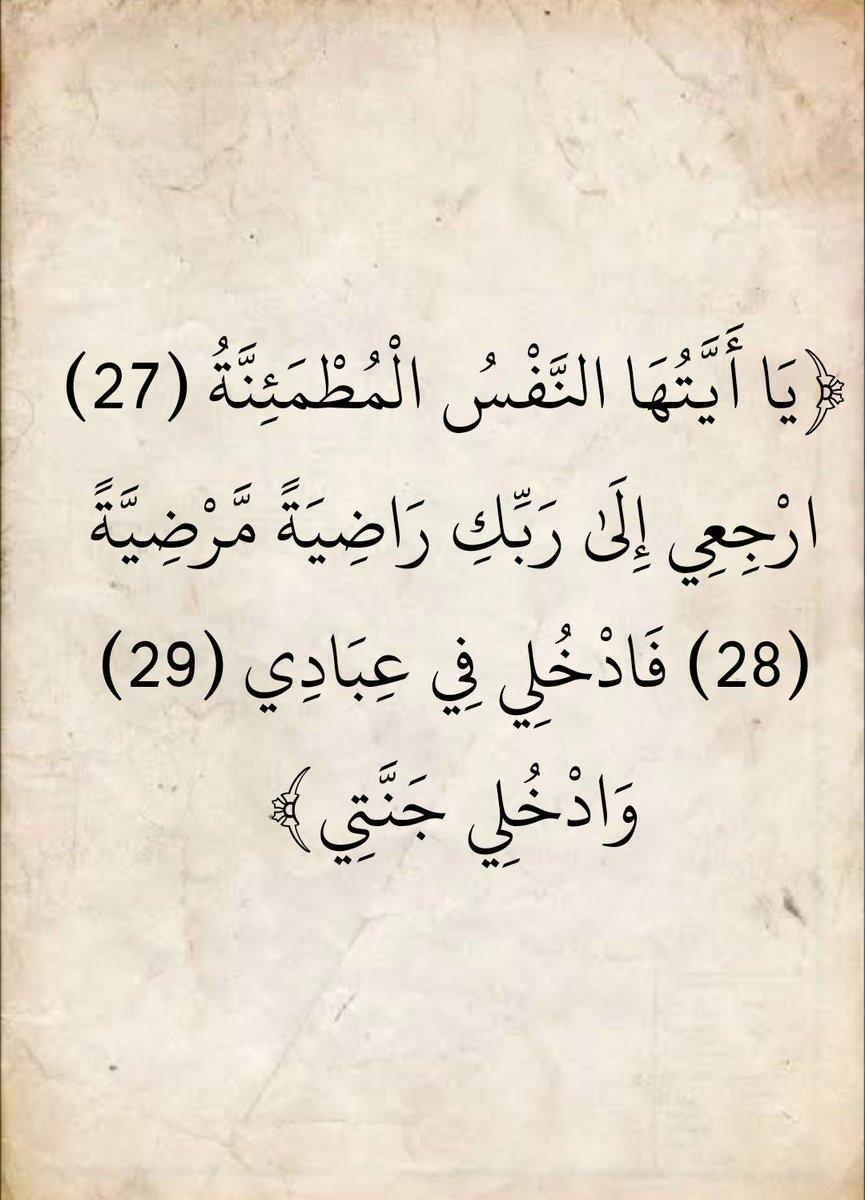 ﴿يَا أَيَّتُهَا النَّفْسُ الْمُطْمَئِنَّةُ (27)
ارْجِعِي إِلَىٰ رَبِّكِ رَاضِيَةً مَّرْضِيَّةً
(28) فَادْخُلِي فِي عِبَادِي (29)
وَادْخُلِي جَنَّتِي﴾